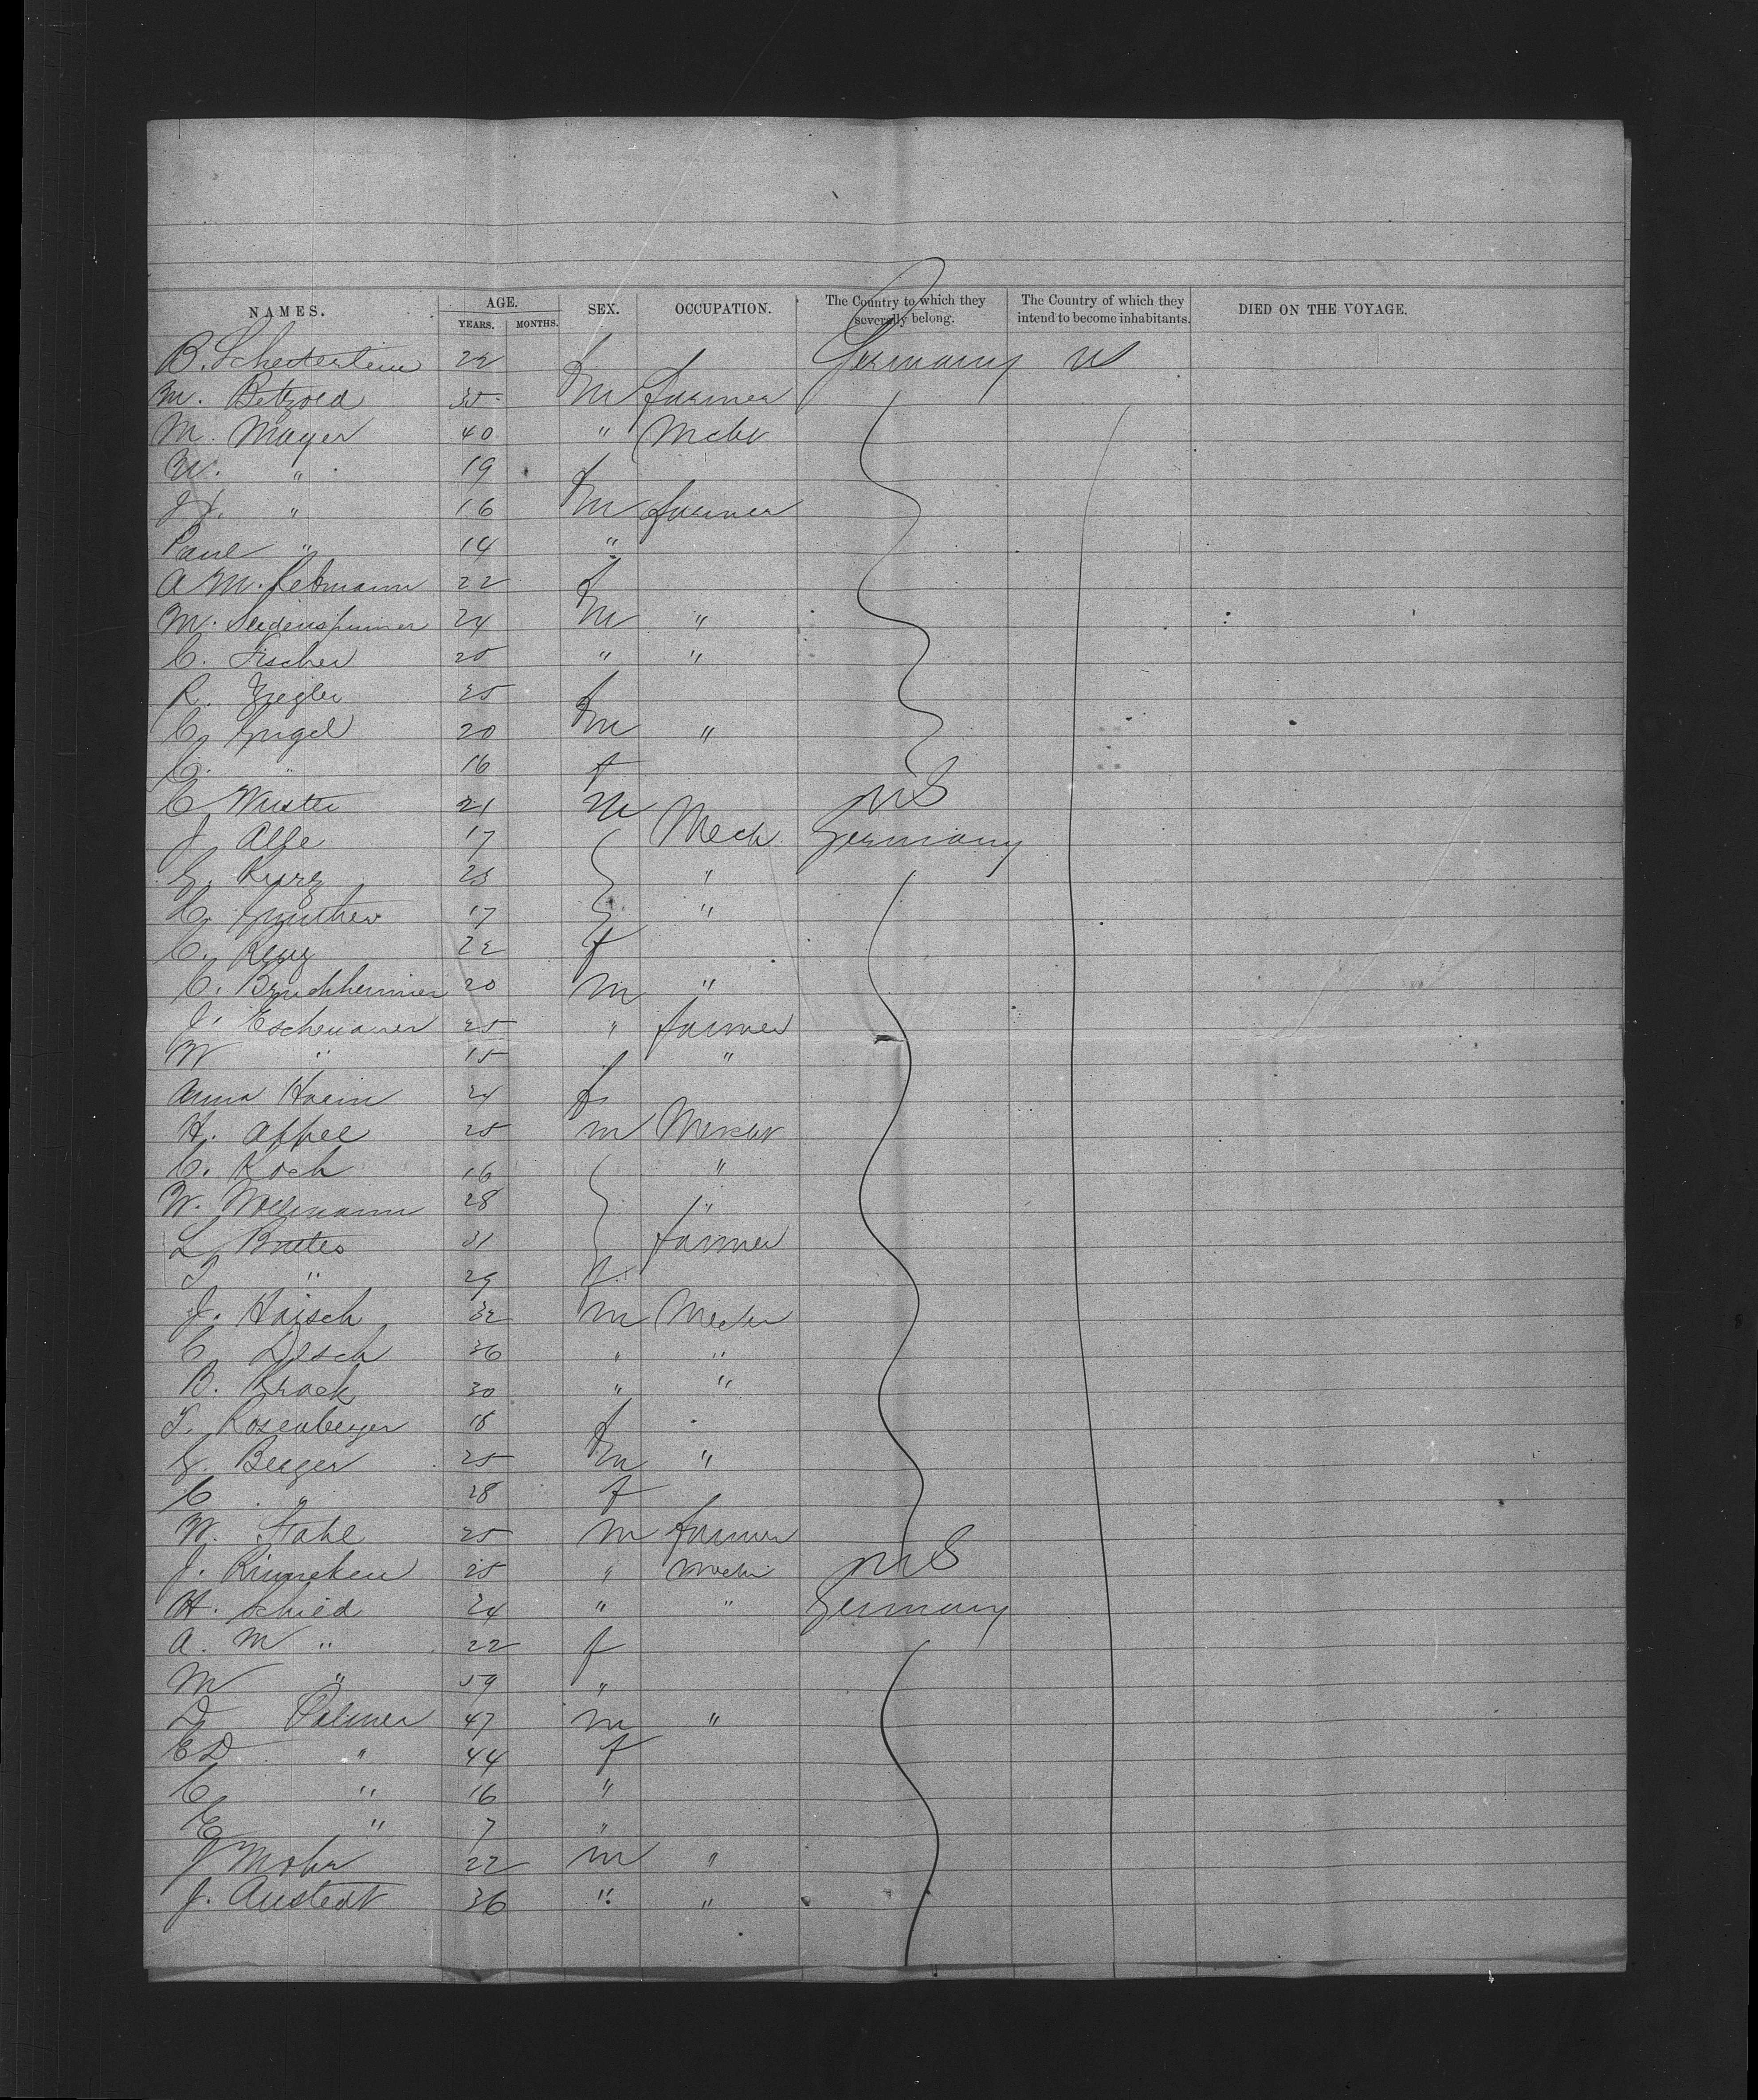 NAMES. AGE. SEX. OCCUPATION. The Country to which they severally belong. The Country of which they intend to become inhabitants. DIED ON THE VOYAGE.
YEARS. MONTHS.
B. 22 f Germany US
M. Betzold 35 m farmer
M. Mayer 40 " Mcht
M. " 19 f
" 16 m farmer
Paul " 14 "
A M. 22 f
M. 24 m "
C. Fischer 20 " "
R. Ziegler 25 f
C. Engel 20 m "
C. " 16 f
C Wuster 21 m US
J. 17 Mech Germany
G. Kurz 23 "
C. Gunther 17 "
C. 22 f
C. Bruchheimer 20 m "
J. Eschenauer 25 " farmer
W " 15 "
Anna 24 f
H. Appel 25 m Mercht
C. Koch 16 "
W. Wollmann 28 "
L. 31 farmer
" 29 f
J. Haisch 32 m Mech
C. Desch 36 " "
B. Krack 30 " "
Rosenberger 18 f
G. Berger 25 m "
C " 28 f
W. Stahl 25 m farmer
J. 25 " Mech US
H. Schied 24 " " Germany
A. M " 22 f
M " 59 "
D Palmer 47 m "
E D " 44 f
C " 16 "
E " 7 "
J Mohr 22 m "
J. Austedt 36 " "